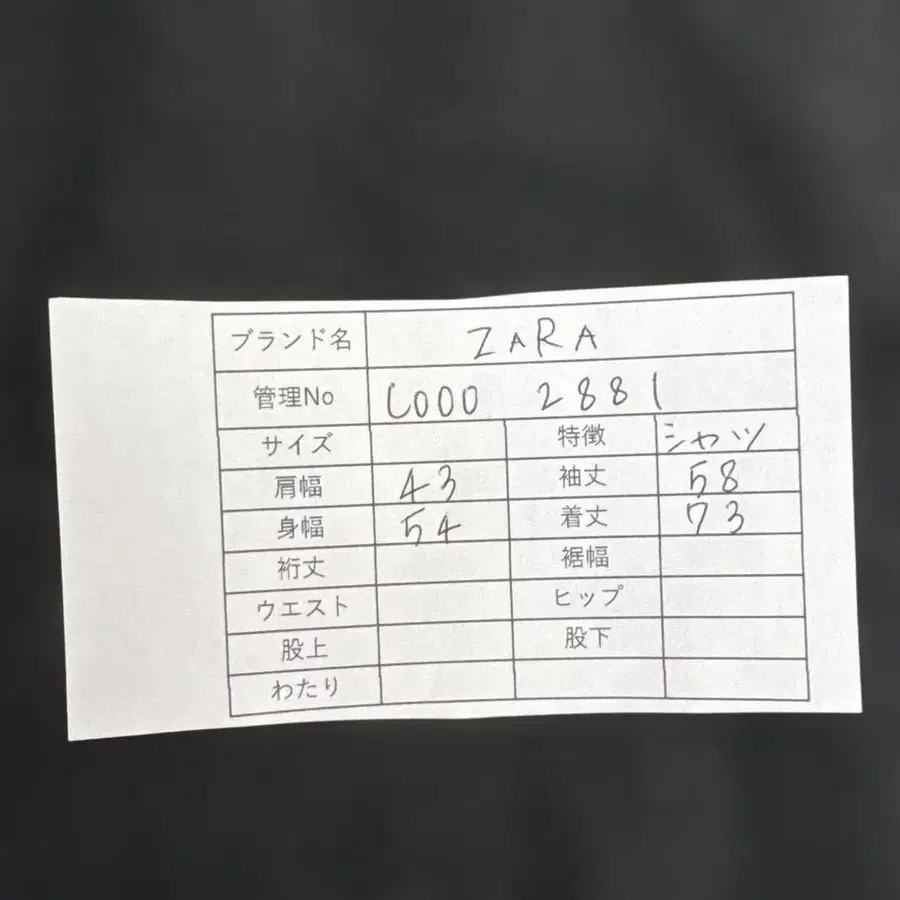 ブランド名 ZARA
管理No C000 2881
サイズ 特徴 シャツ
肩幅 43 袖丈 58
身幅 54 着丈 73
裄丈 裾幅
ウエスト ヒップ
股上 股下
わたり